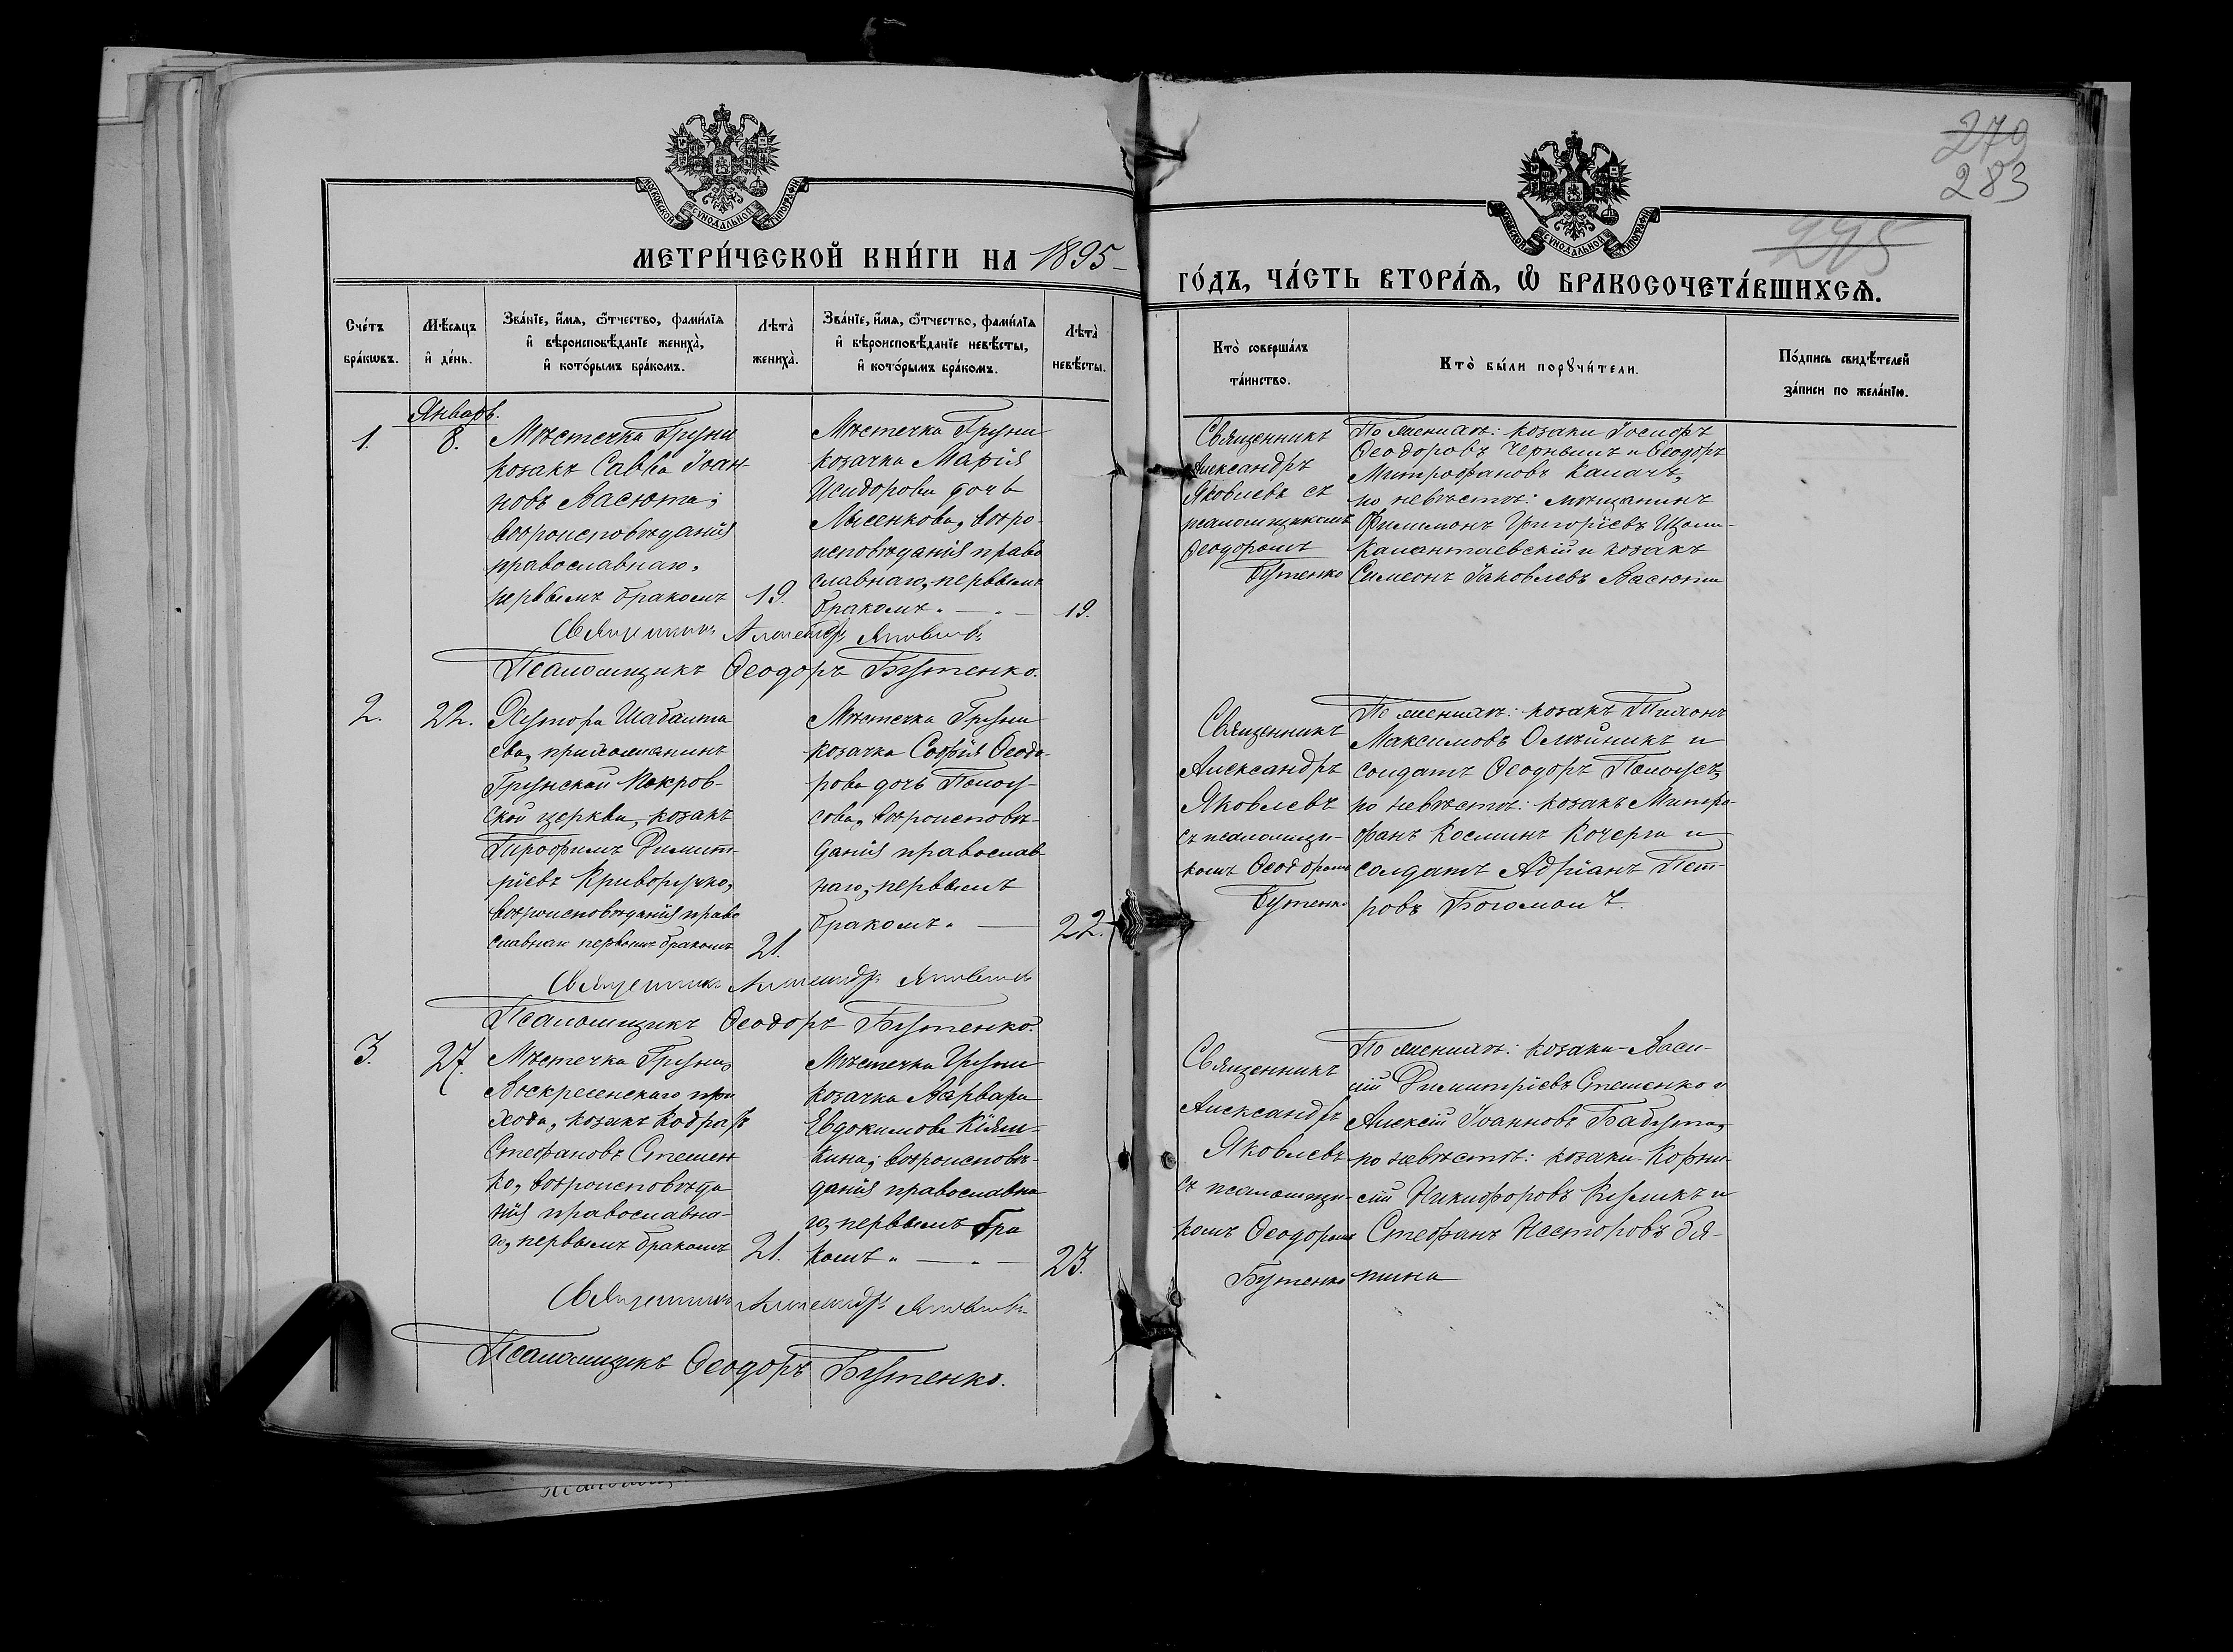 279
283
295
МОСКОВСКОЙ СУНОДАЛЬНОЙ ТИПОГРАФІИ
МОСКОВСКОЙ СУНОДАЛЬНОЙ ТИПОГРАФІИ
МЕТРИ́ЧЕСКОЙ КНИ́ГИ НА 1895
ГО́ДЪ, ЧА́СТЬ ВТОРА́Ѧ, Ѽ БРАКОСОЧЕТА́ВШИХСѦ.
Сче́тъ
бра́кѡвъ.
Мѣ́сяцъ
и҆ де́нь.
Зва́нїе, и҆́мя, ѻ҆́тчество, фами́лїя
и҆ вѣроисповѣ́данїе жениха̀,
и҆ кото́рымъ бра́комъ.
Лѣта̀
жениха̀.
Зва́нїе, и҆́мя, ѻ҆́тчество, фами́лїя
и҆ вѣроисповѣ́данїе невѣ́сты,
и҆ кото́рымъ бра́комъ.
Лѣта̀
невѣ́сты.
Кто̀ соверша́лъ
та́инство.
Кто̀ бы́ли порꙋчи́тели.
По́дпись свидѣ́телей
за́писи по жела́нїю.
1.
Январь.
8.
Мѣстечка Груни
козакъ Савва Іоан
новъ Васюта;
вѣроисповѣданія
православнаго,
первымъ бракомъ
19.
Мѣстечка Груни
козачка Марія
Исидорова дочь
Лысенкова, вѣро-
исповѣданія право
славнаго, первымъ
бракомъ.
19.
Священникъ
Александръ
Яковлевъ съ
псаломщикомъ
Ѳеодоромъ
Бутенко
По женихѣ: козаки Іосифъ
Ѳеодоровъ Чернышъ и Ѳеодоръ
Митрофановъ Калачъ,
по невѣстѣ: мѣщанинъ
Филимонъ Григоріевъ
и козакъ
Симеонъ Іаковлевъ Васюта
Священникъ Александръ Яковлевъ
Псаломщикъ Ѳеодоръ Бутенко.
2.
22.
Хутора Шабалта
ева, прихожанинъ
Грунской Покров-
ской церкви, козакъ
Трофимъ Димит-
ріевъ Криворучко,
вѣроисповѣданія право
славнаго первымъ бракомъ
21.
Мѣстечка Груни
козачка Софія Ѳеодо-
рова дочь Полоу-
сова, вѣроисповѣ-
данія православ
наго, первымъ
бракомъ.
22.
Священникъ
Александръ
Яковлевъ
съ псаломщи-
комъ Ѳеодоромъ
Бутенко
По женихѣ: козакъ
Максимовъ Олѣйникъ и
солдатъ Ѳеодоръ Полоусъ,
по невѣстѣ: козакъ Митро-
фанъ Косминъ Кочерга и
солдатъ Адріанъ Пет-
ровъ
Священникъ Александръ Яковлевъ
Псаломщикъ Ѳеодоръ Бутенко.
3.
27.
Мѣстечка Груни,
Воскресенскаго при
хода, козакъ Кодратъ
Стефановъ Стешен
ко, вѣроисповѣда
нія православна-
го, первымъ бракомъ
21.
Мѣстечка Груни
козачка Варвара
Евдокимова
вѣроисповѣ-
данія православна
го, первымъ бра
комъ.
23.
Священникъ
Александръ
Яковлевъ
съ псаломщи-
комъ Ѳеодоромъ
Бутенко
По женихѣ: козаки Васи-
лій Димитріевъ Стешенко и
Алексій Іоанновъ
по невѣстѣ: козаки Корни-
лій Никифоровъ Куликъ и
Стефанъ Несторовъ Зя-
Священникъ Александръ Яковлевъ
Псаломщикъ Ѳеодоръ Бутенко.